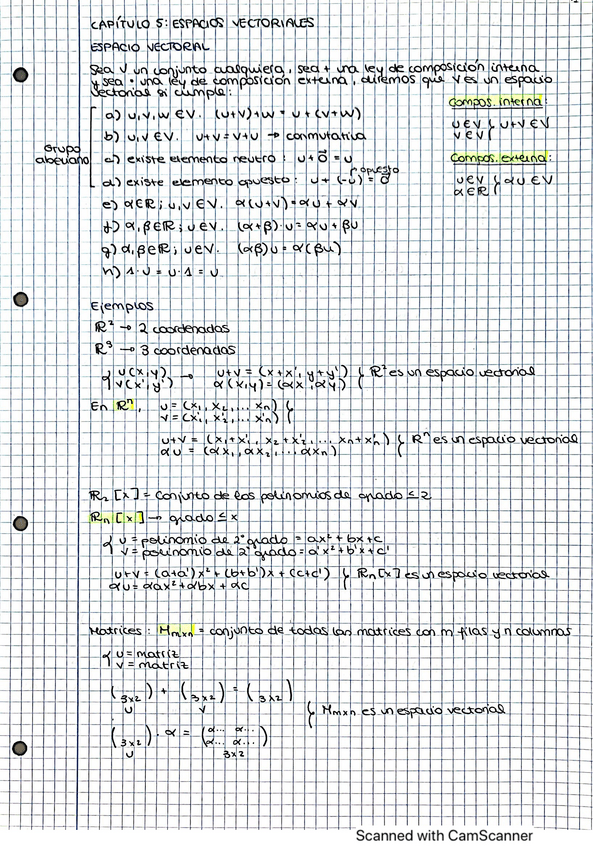 CAPÍTULO 5: ESPACIOS VECTORIALES
ESPACIO VECTORIAL
Sea V un conjunto cualquiera, sea + una ley de composición interna
y sea · una ley de composición externa, diremos que V es un espacio
vectorial si cumple:
Compos. interna:
u∈V
v∈V } u+v∈V
Compos. externa:
u∈V
α∈ℝ } αu∈V
Grupo
abeliano
a) u,v,w∈V. (u+v)+w = u+(v+w)
b) u,v∈V. u+v=v+u → conmutativa
c) existe elemento neutro: u+0⃗=u
d) existe elemento opuesto: u+(-u)=0⃗
opuesto
e) α∈ℝ; u,v∈V. α(u+v)=αu+αv
f) α,β∈ℝ; u∈V. (α+β)·u=αu+βu
g) α,β∈ℝ; u∈V. (αβ)u=α(βu)
h) 1·u=u·1=u
Ejemplos
ℝ² → 2 coordenadas
ℝ³ → 3 coordenadas
{ u(x,y) → u+v=(x+x', y+y') } ℝ² es un espacio vectorial
v(x',y') α(x,y)=(αx, αy)
En ℝⁿ, u=(x₁, x₂, ... xₙ) }
v=(x₁', x₂', ... xₙ')
u+v=(x₁+x₁', x₂+x₂', ... xₙ+xₙ') } ℝⁿ es un espacio vectorial
αu=(αx₁, αx₂, ... αxₙ)
ℝ₂[x] = conjunto de los polinomios de grado ≤ 2
ℝₙ[x] → grado ≤ x
{ u=polinomio de 2º grado = ax²+bx+c
v=polinomio de 2º grado = a'x²+b'x+c'
u+v=(a+a')x²+(b+b')x+(c+c') } ℝₙ[x] es un espacio vectorial
αu=αax²+αbx+αc
Matrices: Mₘₓₙ = conjunto de todas las matrices con m filas y n columnas
{ u=matriz
v=matriz
(3x2) + (3x2) = (3x2)
u v
} Mₘₓₙ es un espacio vectorial
(3x2)·α = (α... α...
α... α...)
u 3x2
Scanned with CamScanner